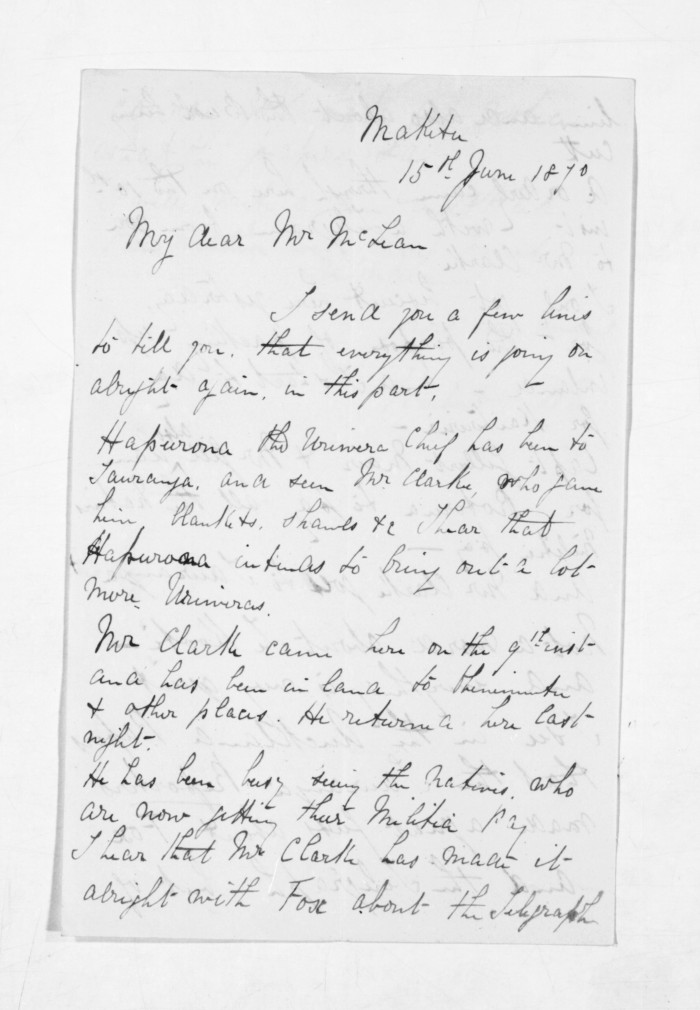 Maketu
15th June 1870
My dear Mr McLean
I send you a few lines
to tell you, that everything is going on
alright again, in this part.
Hapurona the Uriwera Chief has been to
Tauranga, and seen Mr. Clarke, who gave
him blankets, shawls &c I hear that
Hapurona intends to bring out a lot
more Uriweras.
Mr Clark came here on the 9th inst
and has been in land to
& other places. He returned here last
night.
He has been busy seeing the natives, who
are now getting their Militia Pay
I hear that Mr Clark has made it
alright with Fox about the Telegraph